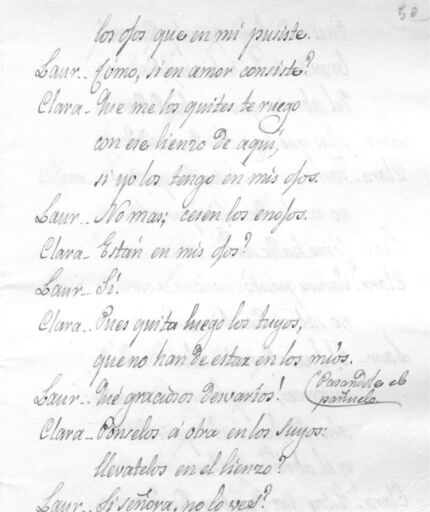 50
los ojos que en mí pusiste.
Laur.- Cómo, si en amor consiste?
Clara - Que me los quites te ruego
con ese lienzo de aquí,
si yo los tengo en mis ojos.
Laur.- No mas; cesen los enojos.
Clara - Están en mis ojos?
Laur.- Sí.
Clara - Pues quita luego los tuyos,
que no han de estar en los míos.
Laur.- Qué graciosos desvaríos! Pasandole el
pañuelo
Clara - Ponselos á otra en los suyos:
llevatelos en el lienzo?
Laur.- Si señora, no lo ves?